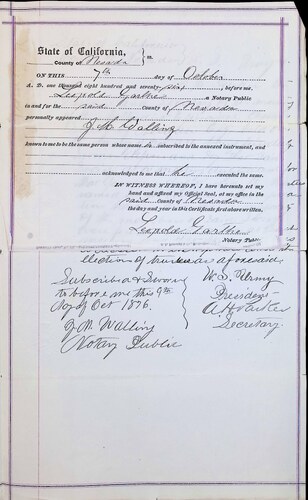 State of California,
County of Nevada } ss.
ON THIS 7th day of October
A. D. one thousand eight hundred and seventy six, before me,
Leopold Garthe a Notary Public
in and for the said County of Nevada
personally appeared
J. M. Walling
known to me to be the same person whose name is subscribed to the annexed instrument, and
acknowledged to me that he executed the same.
IN WITNESS WHEREOF, I have hereunto set my
hand and affixed my Official Seal, at my office in the
said County of Nevada
the day and year in this Certificate first above written.
Leopold Garthe
Notary Public
election of trustees as aforesaid
Subscribed & Sworn
to before me this 9th
day of Oct 1876.
J. M. Walling
Notary Public
President
Secretary